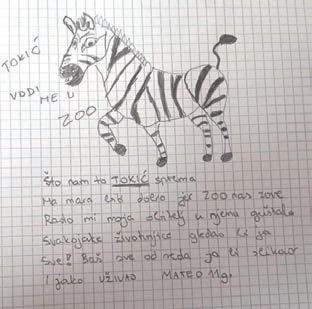 TOKIĆ
VODI
ME U
ZOO
Što nam to TOKIĆ sprema
Ma mora biti dobro jer ZOO nas zove
Rado bi moja obitelj u njemu guštala
Svakojake životinjice gledao bi ja
Sve! Baš sve od reda ja bi slikao
I jako UŽIVAO MATEO 11g.